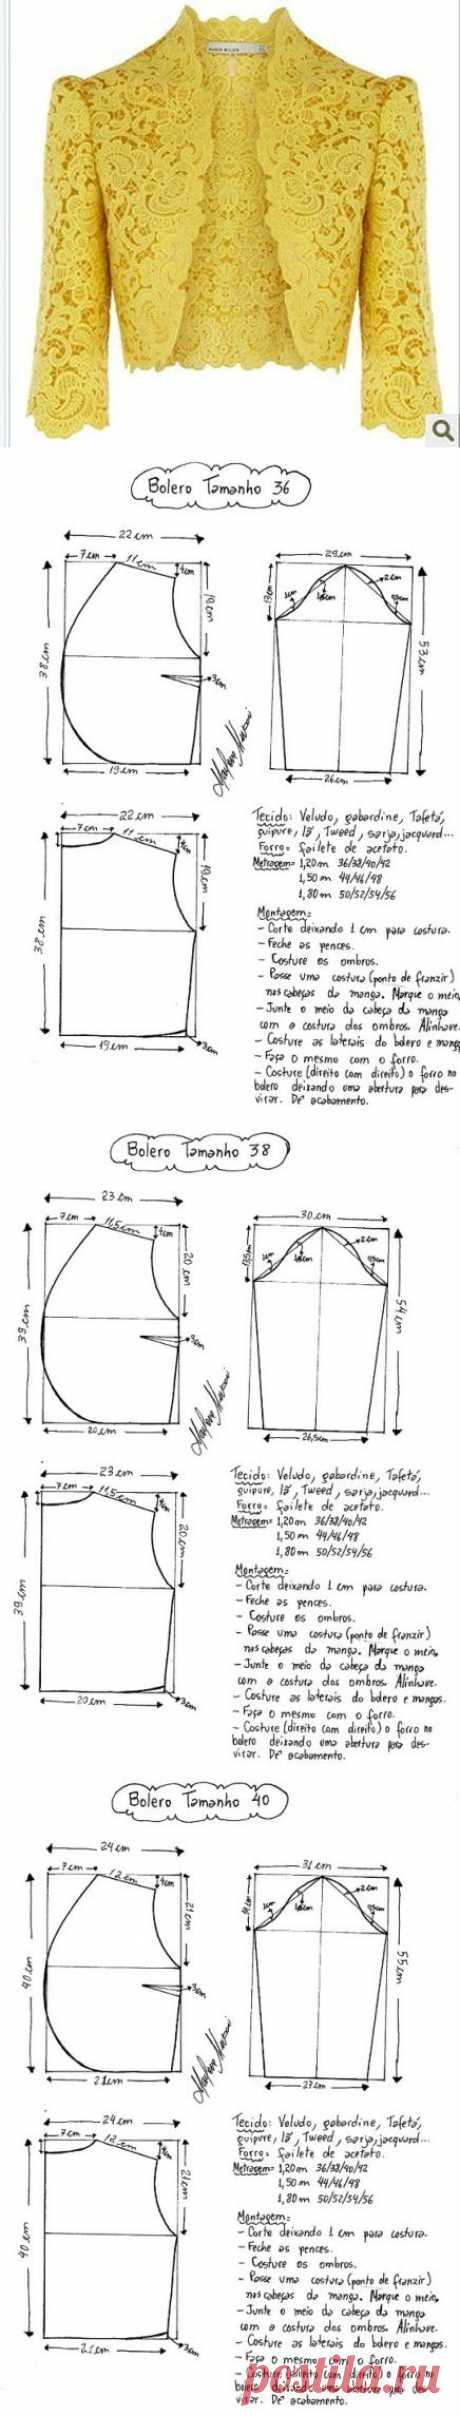 KAREN MILLEN
Bolero Tamanho 36
22 cm
7 cm
11 cm
4cm
19 cm
38 cm
3cm
19 cm
29 cm
13 cm
1cm
1,5cm
2cm
0,5cm
53 cm
26 cm
22 cm
7 cm
11 cm
4cm
19 cm
38 cm
19 cm
3cm
Tecido: Veludo, gabardine, Tafetá,
guipure, lã, Tweed, sarja, jacquard...
Forro: failete de acetato.
Metragem= 1,20m 36/38/40/42
1,50m 44/46/48
1,80m 50/52/54/56
Montagem=
- Corte deixando 1 cm para costura.
- Feche as pences.
- Costure os ombros.
- Passe uma costura (ponto de franzir)
nas cabeças da manga. Marque o meio,
- Junte o meio da cabeça da manga
com a costura dos ombros. Alinhave.
- Costure as laterais do bolero e mangas
- Faça o mesmo com o forro.
- Costure (direito com direito) o forro no
bolero deixando uma abertura para des-
virar. Dê acabamento.
Bolero Tamanho 38
23 cm
7 cm
11,5 cm
4cm
20 cm
39 cm
3cm
20 cm
30 cm
13,5cm
1cm
1,5cm
2cm
0,5cm
54 cm
26,5cm
23 cm
7 cm
11,5 cm
4cm
20 cm
39 cm
20 cm
3cm
Tecido: Veludo, gabardine, Tafetá,
guipure, lã, Tweed, sarja, jacquard...
Forro: failete de acetato.
Metragem= 1,20m 36/38/40/42
1,50m 44/46/48
1,80m 50/52/54/56
Montagem=
- Corte deixando 1 cm para costura.
- Feche as pences.
- Costure os ombros.
- Passe uma costura (ponto de franzir)
nas cabeças da manga. Marque o meio,
- Junte o meio da cabeça da manga
com a costura dos ombros. Alinhave.
- Costure as laterais do bolero e mangas.
- Faça o mesmo com o forro.
- Costure (direito com direito) o forro no
bolero deixando uma abertura para des-
virar. Dê acabamento.
Bolero Tamanho 40
24 cm
7 cm
12 cm
4cm
21 cm
40 cm
3cm
21cm
31 cm
14 cm
1cm
1,5cm
2cm
0,5cm
55 cm
27cm
24 cm
7 cm
12 cm
4cm
21 cm
40 cm
21 cm
3cm
Tecido: Veludo, gabardine, Tafetá,
guipure, lã, Tweed, sarja, jacquard...
Forro: failete de acetato.
Metragem= 1,20m 36/38/40/42
1,50m 44/46/48
1,80m 50/52/54/56
Montagem=
- Corte deixando 1 cm para costura.
- Feche as pences.
- Costure os ombros.
- Passe uma costura (ponto de franzir)
nas cabeças da manga. Marque o meio,
- Junte o meio da cabeça da manga
com a costura dos ombros. Alinhave.
- Costure as laterais do bolero e mangas.
- Faça o mesmo com o forro.
- Costure (direito com direito) o forro no
bolero deixando uma abertura para des-
virar. Dê acabamento.
postila.ru